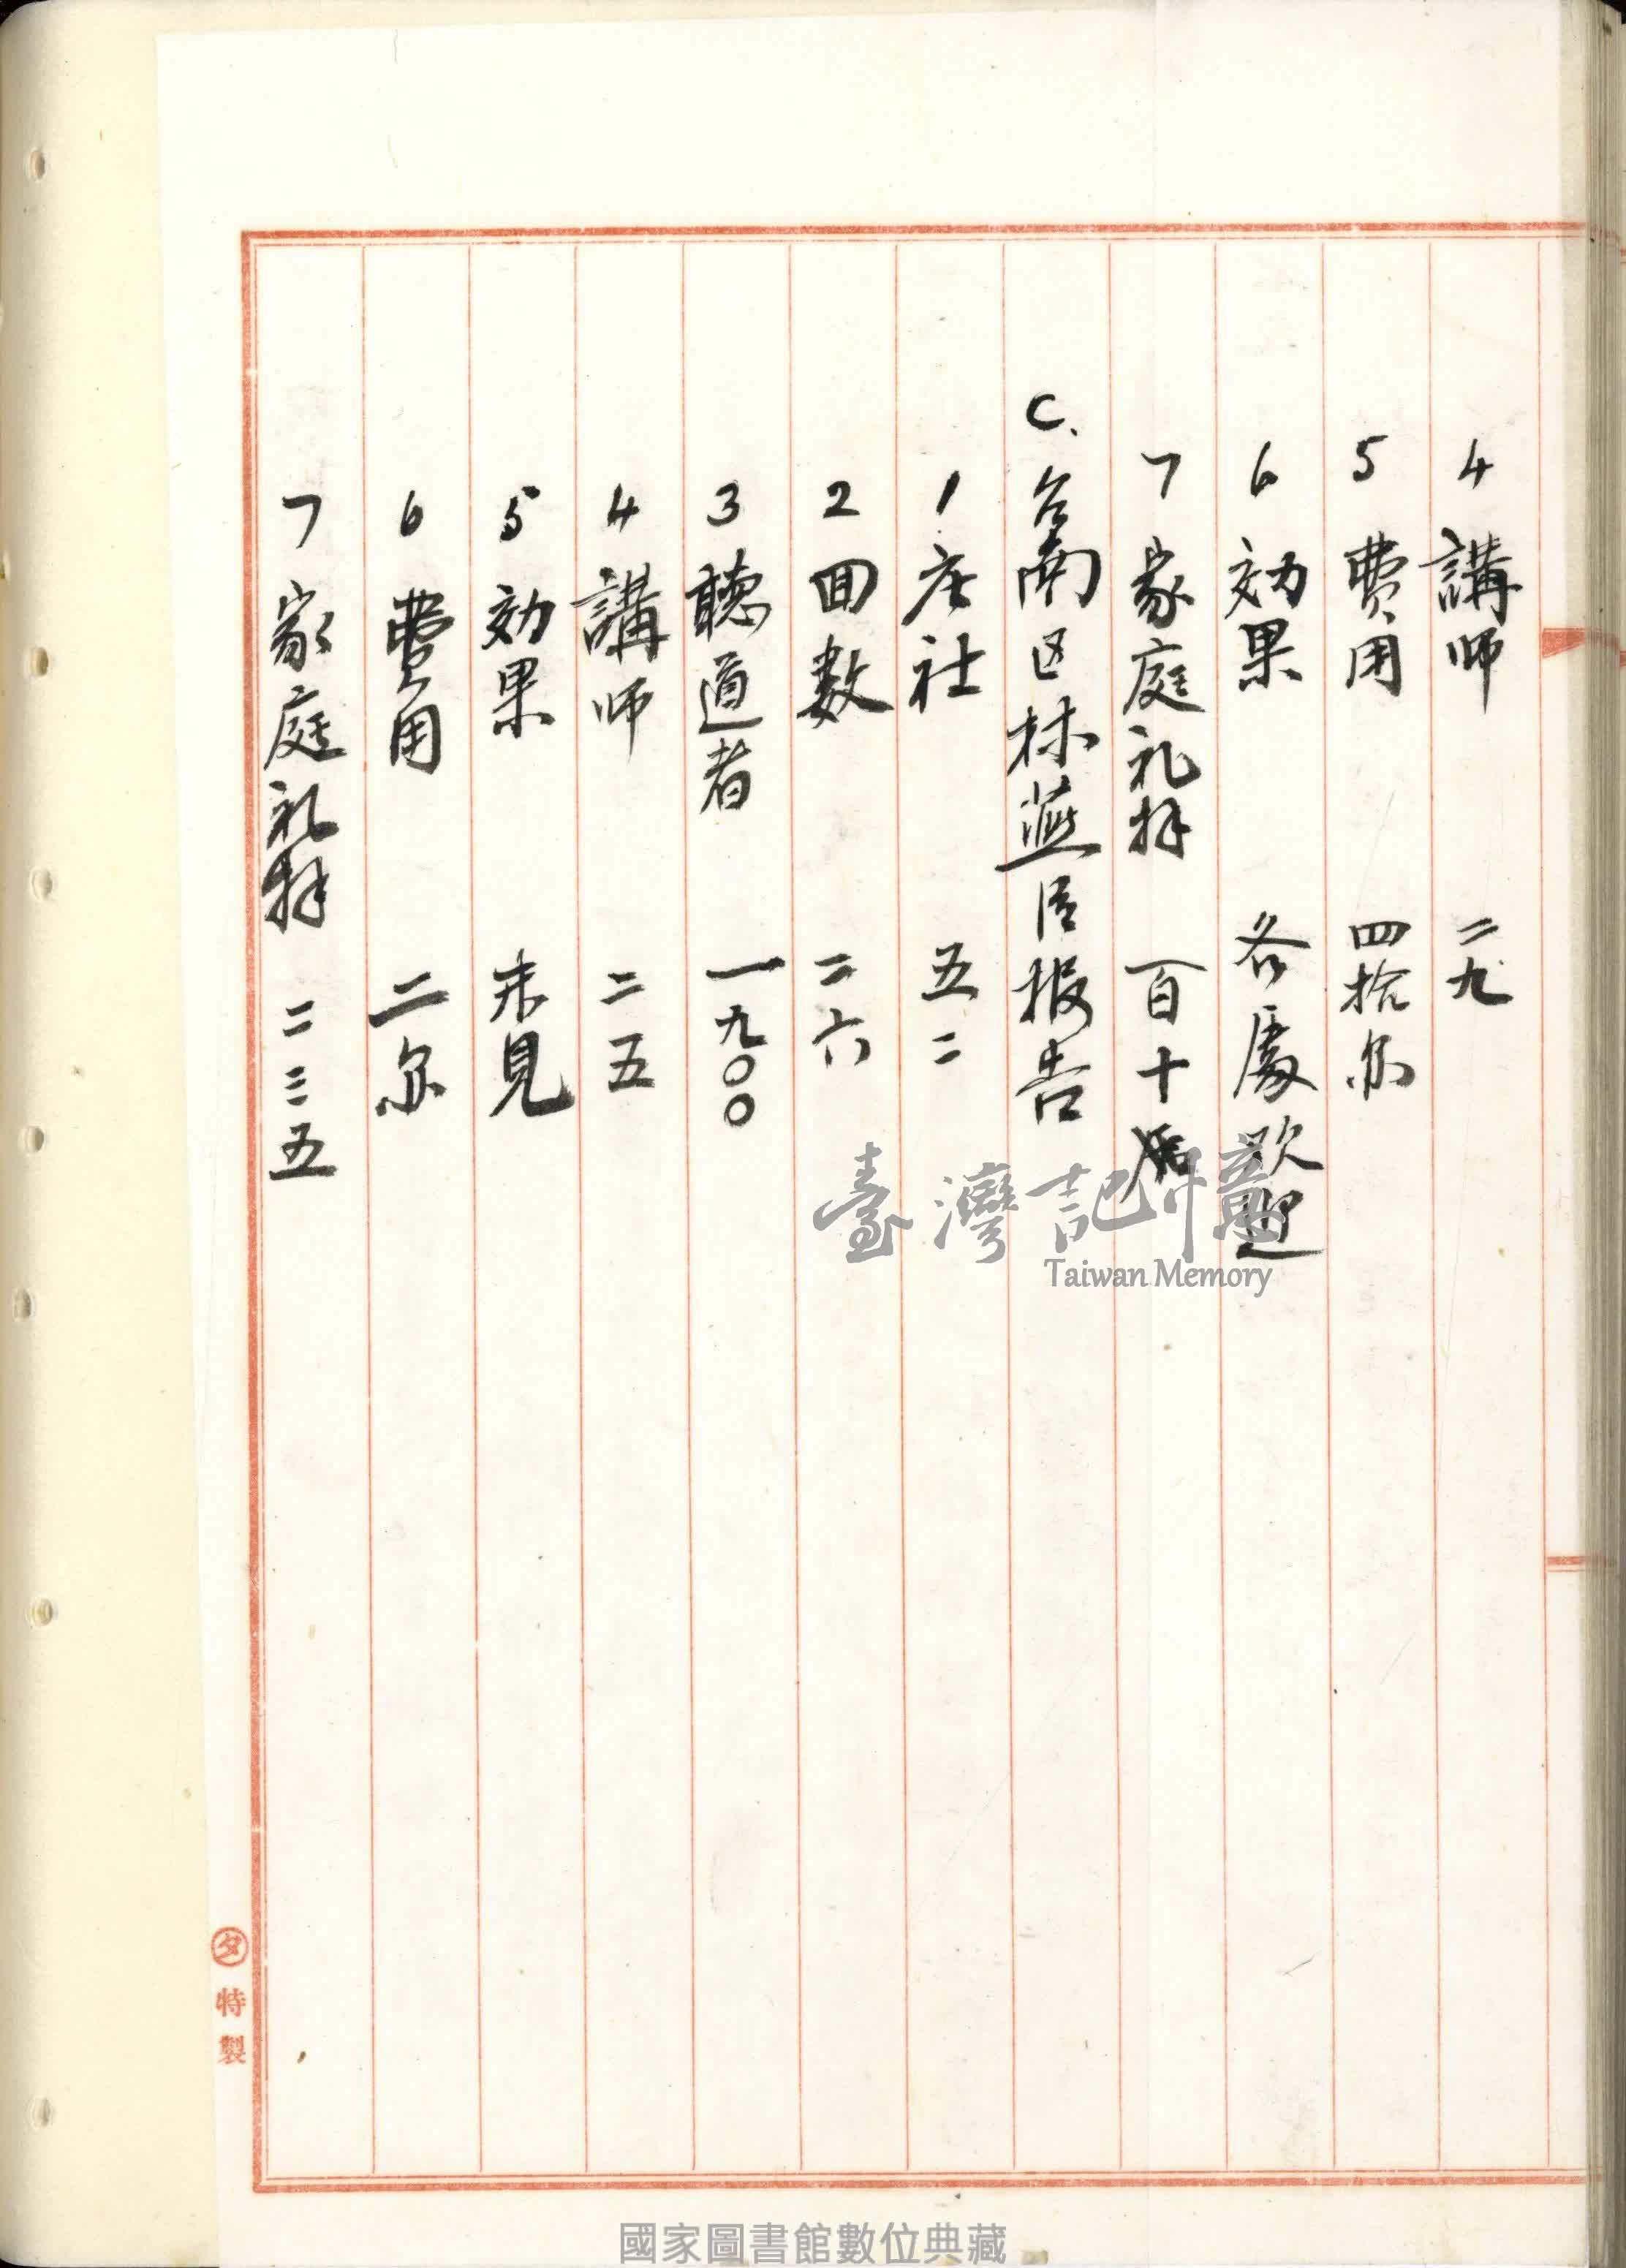 4 講师 二九
5 費用 四拾尔
6 効果 各處欢迎
7 家庭礼拜 百十
C. 台南区林燕臣报告
1 庄社 五二
2 回数 二六
3 聽道者 一九〇〇
4 講师 二五
5 効果 未見
6 費用 二尔
7 家庭礼拜 二三五
タ 特製
臺灣記憶
Taiwan Memory
國家圖書館數位典藏